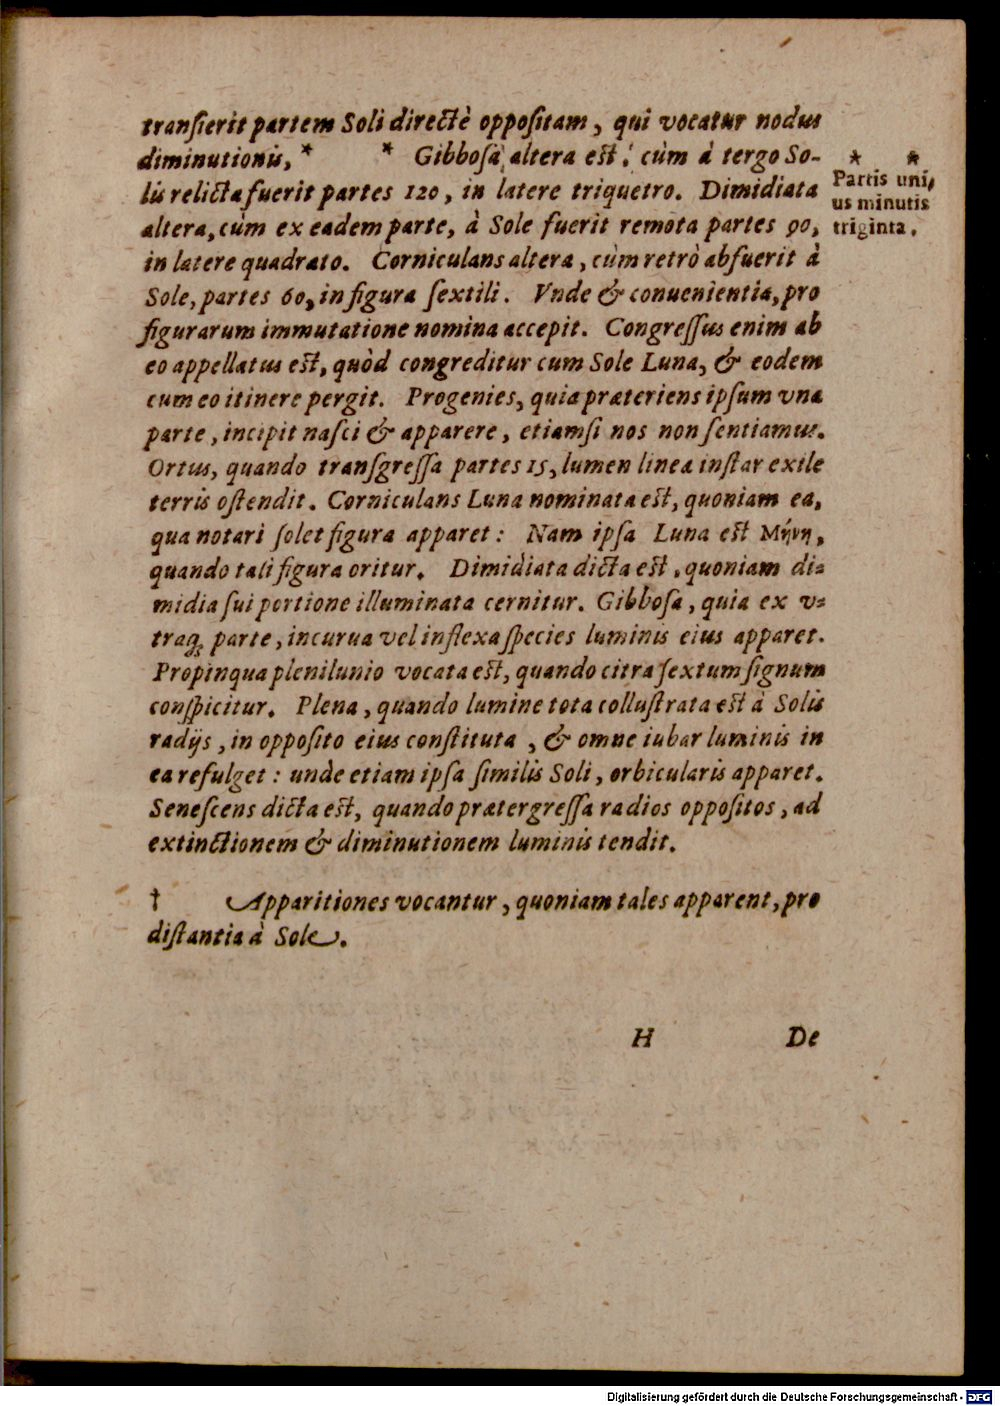 tranſierit partem Soli directè oppoſitam, qui vocatur nodus
diminutionis, * * Gibboſa altera eſt, cùm à tergo So-
lis relicta fuerit partes 120, in latere triquetro. Dimidiata
altera, cùm ex eadem parte, à Sole fuerit remota partes 90,
in latere quadrato. Corniculans altera, cùm retrò abfuerit à
Sole, partes 60, in figura ſextili. Vnde & conuenientia, pro
figurarum immutatione nomina accepit. Congreſſus enim ab
eo appellatus eſt, quòd congreditur cum Sole Luna, & eodem
cum eo itinere pergit. Progenies, quia præteriens ipſum vna
parte, incipit naſci & apparere, etiamſi nos non ſentiamus.
Ortus, quando tranſgreſſa partes 15, lumen linea inſtar exile
terris oſtendit. Corniculans Luna nominata eſt, quoniam ea,
qua notari ſolet figura apparet: Nam ipſa Luna eſt Μήνη,
quando tali figura oritur. Dimidiata dicta eſt, quoniam di-
midia ſui portione illuminata cernitur. Gibboſa, quia ex v-
traq; parte, incurua vel inflexa ſpecies luminis eius apparet.
Propinqua plenilunio vocata eſt, quando citra ſextum ſignum
conſpicitur. Plena, quando lumine tota colluſtrata eſt à Solis
radijs, in oppoſito eius conſtituta, & omne iubar luminis in
ea refulget: unde etiam ipſa ſimilis Soli, orbicularis apparet.
Seneſcens dicta eſt, quando prætergreſſa radios oppoſitos, ad
extinctionem & diminutionem luminis tendit.
† Apparitiones vocantur, quoniam tales apparent, pro
diſtantia à Sole.
* *
Partis uni,
us minutis
triginta.
H De
Digitalisierung gefördert durch die Deutsche Forschungsgemeinschaft - DFG